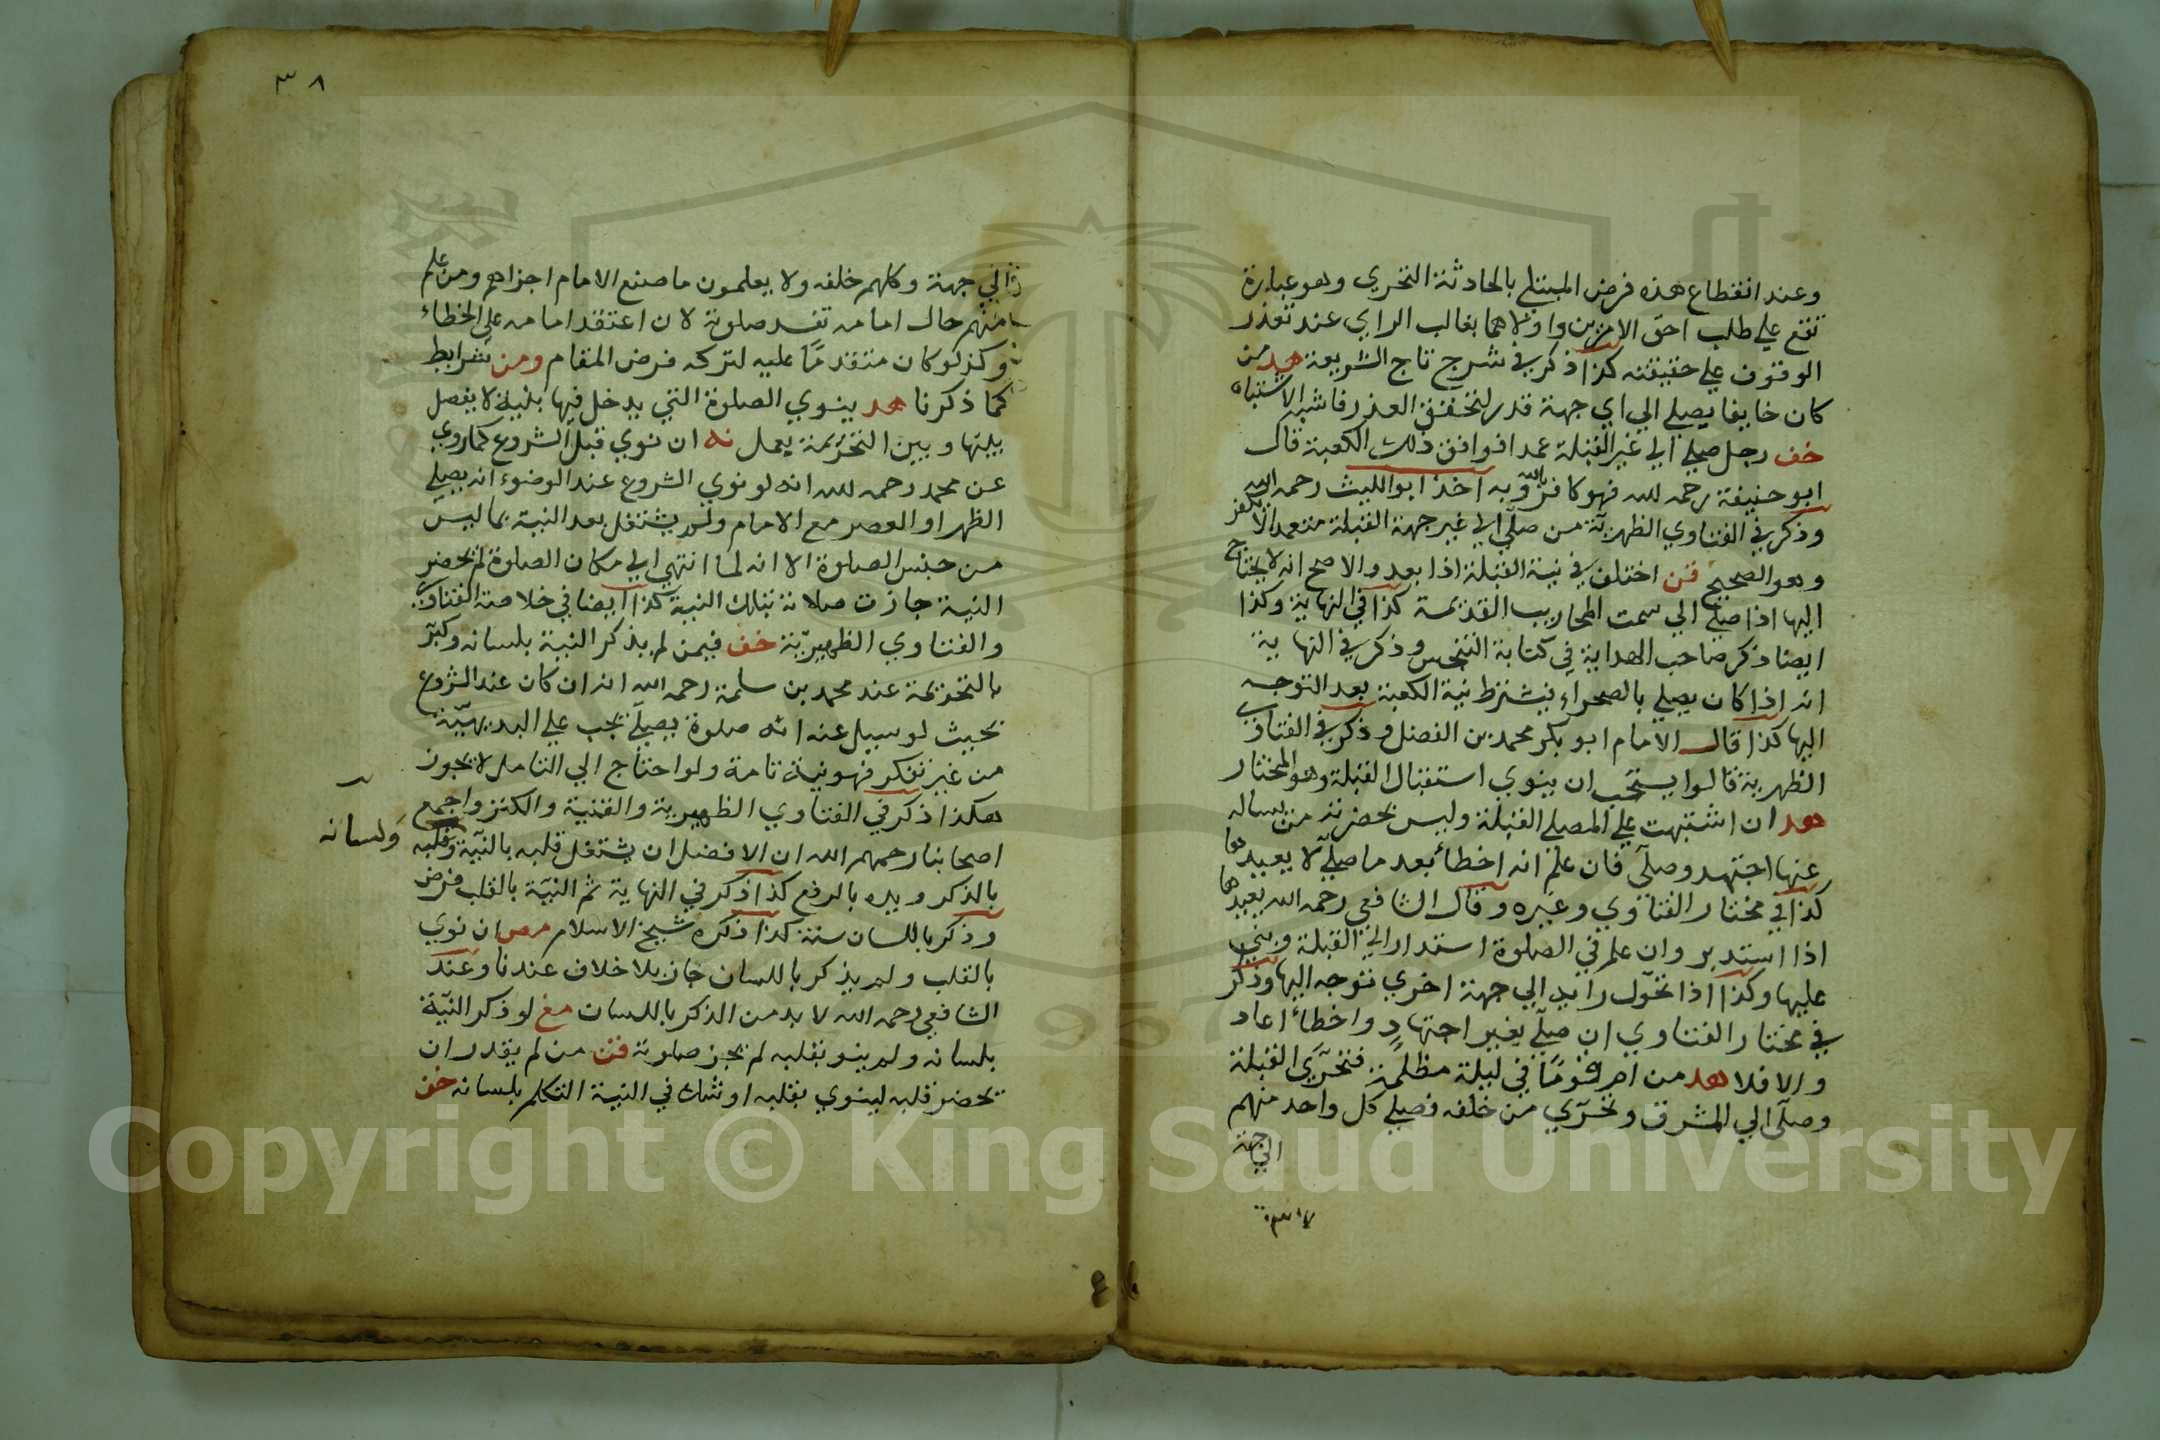 وعند انقطاع هذه فرض المبتلي بالحادثة التحري وهو عبارة
تقع علي طلب احق الامرين واولاهما بغالب الراي عند تعذر
الوقوف علي حقيقته كذا ذكر في شرح تاج الشريعة هد من
كان خايفا يصلي الي اي جهة قدر لتحقق العذر فاشبه الاشتباه
خف رجل صلي الي غير القبلة عمدا فوافق ذلك الكعبة قال
ابو حنيفة رحمه لله فهو كافر بالله وبه اخذ ابو الليث رحمه الله
وذكر في الفتاوي الظهرية من صلي الي غير جهة القبلة متعمدا لا يكفر
وهو الصحيح قن اختلف في نية القبلة اذا بعد والاصح انه لا يحتاج
اليها اذا صلي الي سمت المحاريب القديمة كذا في النهاية وكذا
ايضا ذكر صاحب الهداية في كتابة التنجس وذكر في النهاية
انه اذا كان يصلي بالصحراء فيشترط نية الكعبة بعد التوجه
اليها كذا قال الامام ابو بكر محمد بن الفضل وذكر في الفتاوي
الظهرية قالوا يستحب ان ينوي استقبال القبلة وهو المختار
هد ان اشتبهت علي المصلي القبلة وليس بحضرته من يساله
عنها اجتهد وصلي فان علم انه اخطأ بعد ما صلي لا يعيدها
كذا في مختار الفتاوي وغيره وقال الشافعي رحمه الله يعيدها
اذا استدبر وان علم في الصلوة استدار الي القبلة وبني
عليها وكذا اذا تحول رايه الي جهة اخري توجه اليها وذكر
في مختار الفتاوي ان صلي بغير اجتهاد واخطأ اعاد
والا فلا هد من ام قوما في ليلة مظلمة فتحري القبلة
وصلي الي المشرق وتحري من خلفه فصلي كل واحد منهم
الي جهة
٣٨
الي جهة وكلهم خلفه ولا يعلمون ما صنع الامام اجزاهم ومن علم
منهم حال امامه تفسد صلوته لان اعتقد امامه علي الخطاء
وكذ لو كان متقدما عليه لتركه فرض المقام ومن شرايط
كما ذكرنا هد ينوي الصلوة التي يدخل فيها بنية لا يفصل
بينها وبين التحريمة بعمل نه ان نوي قبل الشروع كما روي
عن محمد رحمه لله انه لو نوي الشروع عند الوضوء انه يصلي
الظهر او العصر مع الامام ولم يشتغل بعد النية بما ليس
من جنس الصلوة الا انه لما انتهي الي مكان الصلوة لم يحضر
النية جازت صلاته بتلك النية كذا ايضا في خلاصة الفتاوي
والفتاوي الظهيرية خف فيمن لم يذكر النية بلسانه وكبر
بالتحريمة عند محمد بن سلمة رحمه الله انه ان كان عند الشروع
بحيث لو سيل عنه اية صلوة يصلي يجب علي البديهية
من غير تفكر فهو نية تامة ولو احتاج الي التامل لا يجوز
هكذا ذكر في الفتاوي الظهيرية والقنية والكنز واجمع
اصحابنا رحمهم الله ان الافضل ان يشتغل قلبه بالنية وقلبه
ولسانه
بالذكر ويده بالرفع كذا ذكر في النهاية ثم النية بالقلب فرض
وذكر باللسان سنة كذا ذكره شيخ الاسلام مص ان نوي
بالقلب ولم يذكر باللسان جاز بلا خلاف عندنا وعند
الشافعي رحمه الله لا بد من الذكر باللسان مغ لو ذكر النية
بلسانه ولم ينو بقلبه لم يجز صلوته قن من لم يقدر ان
يحضر قلبه لينوي بقلبه او شك في النية التكلم بلسانه خف
Copyright © King Saud University